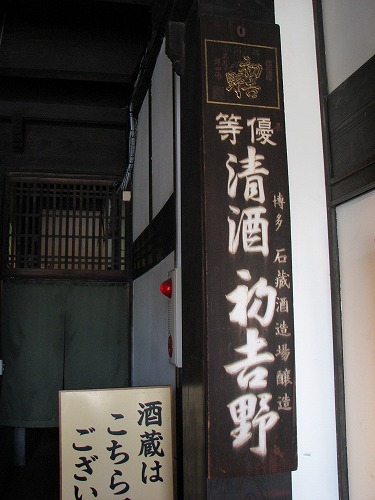 初吉野
優等
清酒 初吉野
博多 石蔵酒造場醸造
酒蔵は
こちら
ござい